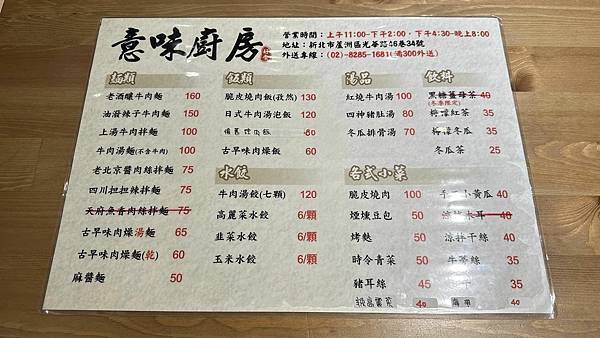 意味廚房
營業時間：上午11:00-下午2:00，下午4:30-晚上8:00
地址：新北市蘆洲區光華路46巷34號
外送專線：(02)-8285-1681(滿300外送)
麵類
老酒釀牛肉麵 160
油潑辣子牛肉麵 150
上湯牛肉拌麵 100
牛肉湯麵(不含牛肉) 100
老北京醬肉絲拌麵 75
四川担担辣拌麵 75
天府魚香肉絲拌麵 75
古早味肉燥湯麵 65
古早味肉燥麵(乾) 60
麻醬麵 50
飯類
脆皮燒肉飯(孜然) 130
日式牛肉湯泡飯 120
80
古早味肉燥飯 30
水餃
牛肉湯餃(七顆) 120
高麗菜水餃 6/顆
韭菜水餃 6/顆
玉米水餃 6/顆
湯品
紅燒牛肉湯 100
四神豬肚湯 80
冬瓜排骨湯 70
飲料
黑糖薑母茶 40
(冬季限定)
檸檬紅茶 35
檸檬冬瓜 35
冬瓜茶 25
各式小菜
脆皮燒肉 100
煙燻豆包 50
烤麩 50
時令青菜 50
豬耳絲 45
40
手工小黃瓜 40
涼拌木耳 40
涼拌干絲 40
牛蒡絲 35
35
海帶 40